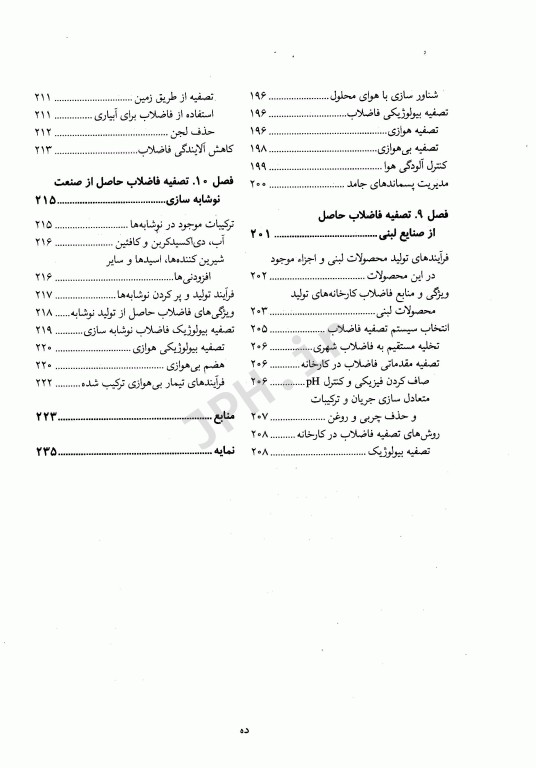 شناور سازی با هوای محلول ........................ ۱۹۶
تصفیه بیولوژیکی فاضلاب ........................ ۱۹۶
تصفیه هوازی ........................ ۱۹۶
تصفیه بی‌هوازی ........................ ۱۹۸
کنترل آلودگی هوا ........................ ۱۹۹
مدیریت پسماندهای جامد ........................ ۲۰۰
فصل ۹. تصفیه فاضلاب حاصل
از صنایع لبنی ........................ ۲۰۱
فرآیندهای تولید محصولات لبنی و اجزاء موجود
در این محصولات ........................ ۲۰۲
ویژگی و منابع فاضلاب کارخانه‌های تولید
محصولات لبنی ........................ ۲۰۳
انتخاب سیستم تصفیه فاضلاب ........................ ۲۰۵
تخلیه مستقیم به فاضلاب شهری ............ ۲۰۶
تصفیه مقدماتی فاضلاب در کارخانه ............ ۲۰۶
صاف کردن فیزیکی و کنترل pH ............ ۲۰۶
متعادل سازی جریان و ترکیبات
و حذف چربی و روغن ........................ ۲۰۷
روش‌های تصفیه فاضلاب در کارخانه .......... ۲۰۸
تصفیه بیولوژیک ........................ ۲۰۸
تصفیه از طریق زمین ........................ ۲۱۱
استفاده از فاضلاب برای آبیاری ............ ۲۱۱
حذف لجن ........................ ۲۱۲
کاهش آلایندگی فاضلاب ........................ ۲۱۳
فصل ۱۰. تصفیه فاضلاب حاصل از صنعت
نوشابه سازی ........................ ۲۱۵
ترکیبات موجود در نوشابه‌ها ........................ ۲۱۵
آب، دی‌اکسیدکربن و کافئین ................ ۲۱۶
شیرین کننده‌ها، اسیدها و سایر
افزودنی‌ها ........................ ۲۱۶
فرآیند تولید و پر کردن نوشابه‌ها ................ ۲۱۷
ویژگی‌های فاضلاب حاصل از تولید نوشابه ..... ۲۱۸
تصفیه بیولوژیک فاضلاب نوشابه سازی .......... ۲۱۹
تصفیه بیولوژیکی هوازی ................ ۲۲۰
هضم بی‌هوازی ........................ ۲۲۰
فرآیندهای تیمار بی‌هوازی ترکیب شده ........ ۲۲۲
منابع ........................ ۲۲۳
نمایه ........................ ۲۳۵
JPH.ir
ده